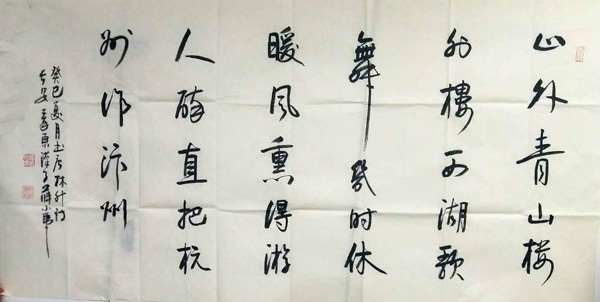 山外青山楼
外樓西湖歌
舞幾时休
暖风熏得游
人醉直把杭
州作汴州
癸巳夏月书林升诗